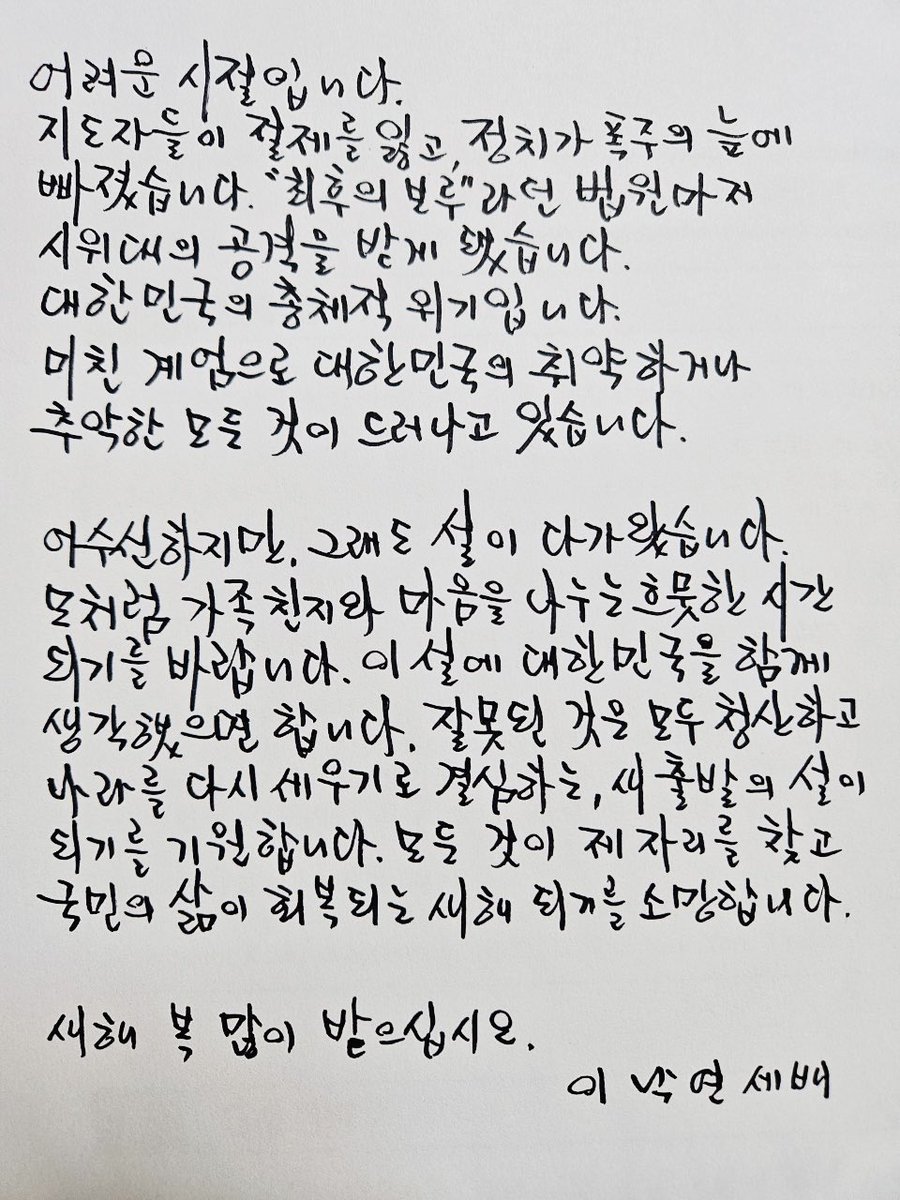 어려운 시절입니다.
지도자들이 절제를 잃고, 정치가 폭주의 늪에
빠졌습니다. "최후의 보루"라던 법원마저
시위대의 공격을 받게 됐습니다.
대한민국의 총체적 위기입니다.
미친 계엄으로 대한민국의 취약하거나
추악한 모든 것이 드러나고 있습니다.
어수선하지만, 그래도 설이 다가왔습니다.
모처럼 가족친지와 마음을 나누는 흐뭇한 시간
되기를 바랍니다. 이 설에 대한민국을 함께
생각했으면 합니다. 잘못된 것은 모두 청산하고
나라를 다시 세우기로 결심하는, 새 출발의 설이
되기를 기원합니다. 모든 것이 제 자리를 찾고
국민의 삶이 회복되는 새해 되기를 소망합니다.
새해 복 많이 받으십시오.
이낙연 세배